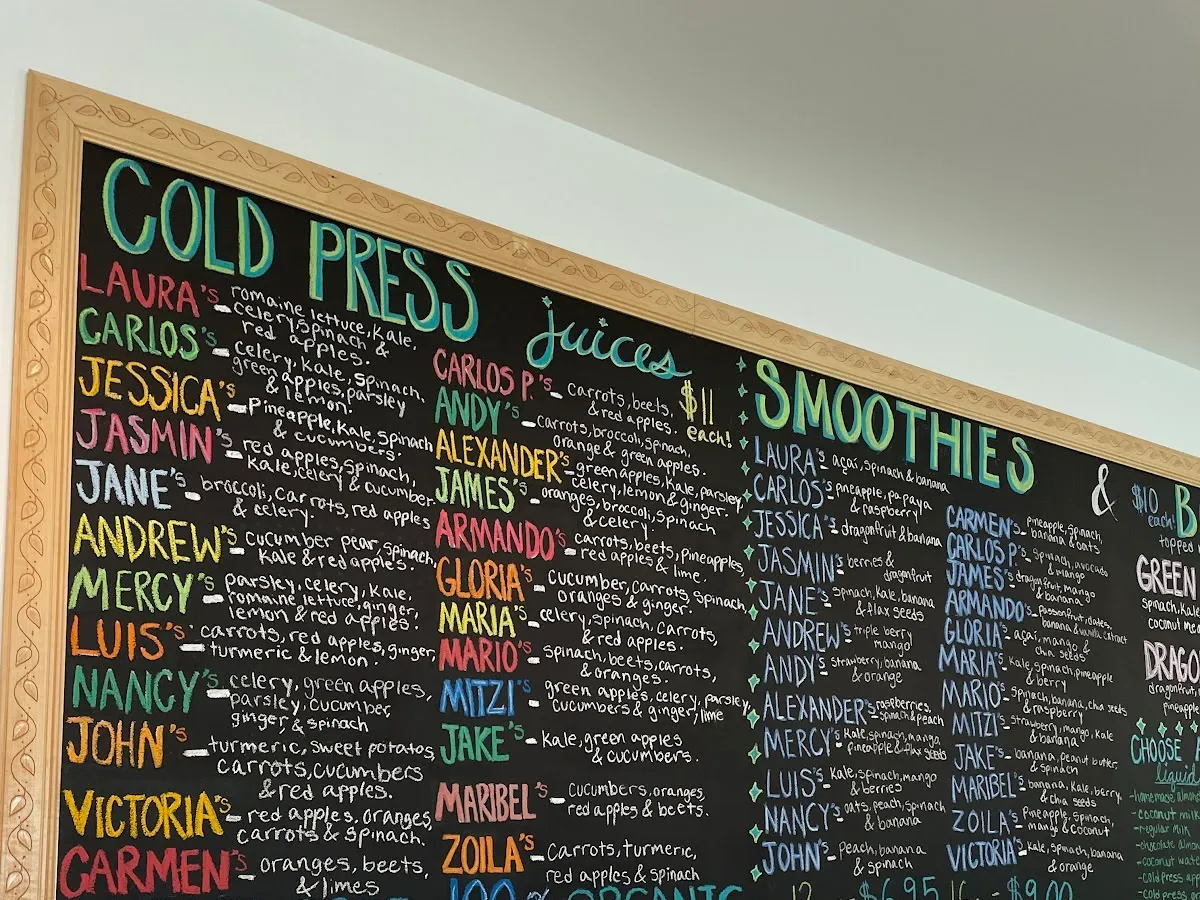 COLD PRESS
juices
$11
each!
LAURA's - romaine lettuce, kale,
celery, spinach &
red apples.
CARLOS's - celery, kale, spinach,
green apples, parsley
& lemon.
JESSICA's - Pineapple, kale, spinach
& cucumbers.
JASMIN's - red apples, spinach,
kale, celery & cucumber
JANE's - broccoli, carrots, red apples
& celery.
ANDREW's - cucumber pear, spinach,
kale & red apples.
MERCY's - parsley, celery, kale,
romaine lettuce, ginger,
lemon & red apples.
LUIS's - carrots, red apples, ginger,
turmeric & lemon.
NANCY's - celery, green apples,
parsley, cucumber,
ginger, & spinach
JOHN's - turmeric, sweet potatos,
carrots, cucumbers
& red apples.
VICTORIA's - red apples, oranges,
carrots & spinach.
CARMEN's - oranges, beets,
& limes
CARLOS P.'s - carrots, beets,
& red apples.
ANDY's - carrots, broccoli, spinach,
orange & green apples.
ALEXANDER's - green apples, kale, parsley,
celery, lemon & ginger.
JAMES's - oranges, broccoli, spinach
& celery
ARMANDO's - carrots, beets, pineapples,
red apples & lime.
GLORIA's - cucumber, carrots, spinach,
oranges & ginger.
MARIA's - celery, spinach, carrots,
& red apples.
MARIO's - spinach, beets, carrots,
& oranges.
MITZI's - green apples, celery, parsley,
cucumbers & ginger, lime
JAKE's - kale, green apples
& cucumbers.
MARIBEL's - cucumbers, oranges,
red apples & beets.
ZOILA's - carrots, turmeric,
red apples & spinach
100% ORGANIC
SMOOTHIES
&
$10
each!
LAURA's - açaí, spinach & banana
CARLOS's - pineapple, papaya
& raspberry
JESSICA's - dragonfruit & banana
JASMIN's - berries &
dragonfruit
JANE's - spinach, kale, banana
& flax seeds
ANDREW's - triple berry
mango
ANDY's - strawberry, banana
& orange
ALEXANDER's - raspberries,
spinach & peach
MERCY's - kale, spinach, mango,
pineapple & flax seeds
LUIS's - kale, spinach, mango
& berries
NANCY's - oats, peach, spinach
& banana
JOHN's - peach, banana
& spinach
CARMEN's - pineapple, spinach,
banana & oats
CARLOS P's - spinach, avocado
& mango
JAMES's - dragonfruit, mango
& banana.
ARMANDO's - passionfruit, dates,
banana & vanilla extract
GLORIA's - açaí, mango &
chia seeds
MARIA's - kale, spinach, pineapple
& berry
MARIO's - spinach, banana, chia seeds
& raspberry
MITZI's - strawberry, mango, kale
& banana
JAKE's - banana, peanut butter,
& spinach
MARIBEL's - banana, kale, berry,
& chia seeds
ZOILA's - pineapple, spinach,
mango & coconut
VICTORIA's - kale, spinach, banana
& orange
$6.95
$9.00
B
topped
GREEN
spinach, kal
coconut me
DRAGO
dragonfruit
pineapple
CHOOSE
liquid
- homemade almond
- coconut milk
- regular milk
- chocolate almon
- coconut wate
- cold press app
- cold press or